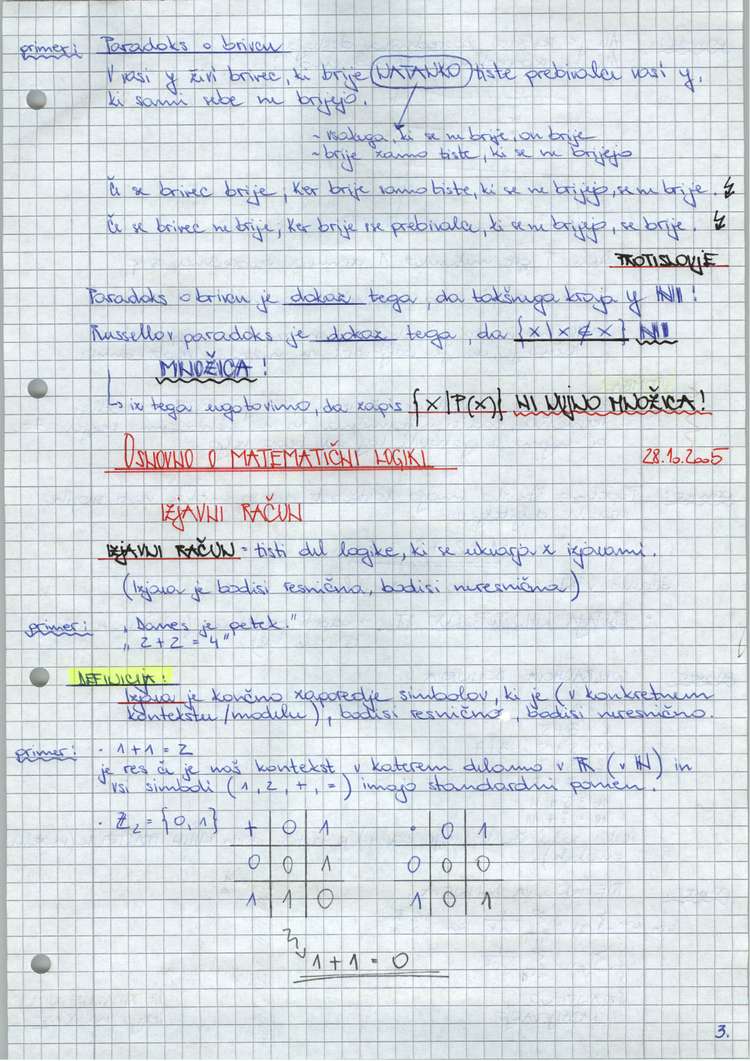 primer: Paradoks o brivcu
V vasi y živi brivec, ki brije NATANKO tiste prebivalce vasi y,
ki sami sebe ne brijejo.
- vsakega, ki se ne brije, on brije
- brije samo tiste, ki se ne brijejo
Če se brivec brije, ker brije samo tiste, ki se ne brijejo, se ne brije. ↯
Če se brivec ne brije, ker brije vse prebivalce, ki se ne brijejo, se brije. ↯
PROTISLOVJE
Paradoks o brivcu je dokaz tega, da takšnega kraja y NI!
Russellov paradoks je dokaz tega, da {x|x ∉ x} NI
MNOŽICA!
↳ iz tega ugotovimo, da zapis {x|P(x)} NI NUJNO MNOŽICA!
OSNOVNO O MATEMATIČNI LOGIKI 28.10.2005
IZJAVNI RAČUN
IZJAVNI RAČUN - tisti del logike, ki se ukvarja z izjavami.
(Izjava je bodisi resnična, bodisi neresnična)
primer: „Danes je petek."
„2+2 = 4"
DEFINICIJA:
Izjava je končno zaporedje simbolov, ki je (v konkretnem
kontekstu/modelu), bodisi resnično, bodisi neresnično.
primer: · 1+1 = 2
je res če je naš kontekst v katerem delamo v ℝ (v ℕ) in
vsi simboli (1, 2, +, =) imajo standardni pomen.
· ℤ₂ = {0, 1} + 0 1 · 0 1
0 0 1 0 0 0
1 1 0 1 0 1
1+1 = 0
3.